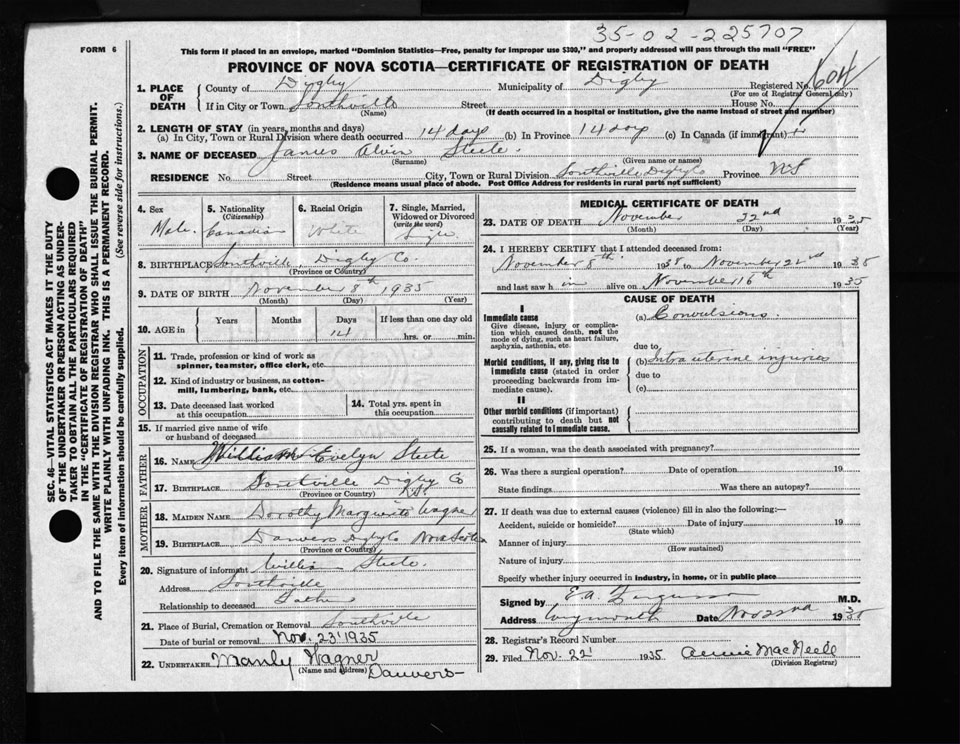 35-02-225707
FORM 6
This form if placed in an envelope, marked "Dominion Statistics—Free, penalty for improper use $300," and properly addressed will pass through the mail "FREE"
PROVINCE OF NOVA SCOTIA—CERTIFICATE OF REGISTRATION OF DEATH
1. PLACE OF DEATH
County of Digby Municipality of Digby Registered No. 604
(For use of Registrar General only)
If in City or Town Southville Street House No.
(Name) (If death occurred in a hospital or institution, give the name instead of street and number)
2. LENGTH OF STAY (in years, months and days)
(a) In City, Town or Rural Division where death occurred 14 days (b) In Province 14 days (c) In Canada (if immigrant)
3. NAME OF DECEASED James Alvin Steele.
(Surname) (Given name or names)
RESIDENCE No. Street City, Town or Rural Division Southville Digby Co Province NS
(Residence means usual place of abode. Post Office Address for residents in rural parts not sufficient)
4. Sex Male.
5. Nationality (Citizenship) Canadian
6. Racial Origin White
7. Single, Married, Widowed or Divorced (write the word) Single
8. BIRTHPLACE Southville, Digby Co.
(Province or Country)
9. DATE OF BIRTH November 8th 1935
(Month) (Day) (Year)
10. AGE in Years Months Days 14 If less than one day old hrs. or min.
OCCUPATION
11. Trade, profession or kind of work as spinner, teamster, office clerk, etc.
12. Kind of industry or business, as cotton-mill, lumbering, bank, etc.
13. Date deceased last worked at this occupation
14. Total yrs. spent in this occupation
15. If married give name of wife or husband of deceased
FATHER
16. Name William Evelyn Steele
17. Birthplace Southville Digby Co
(Province or Country) N.S.
MOTHER
18. Maiden Name Dorothy Marguerite Wagner
19. Birthplace Danvers Digby Co Nova Scotia
(Province or Country)
20. Signature of informant William Steele.
Address Southville
Relationship to deceased Father
21. Place of Burial, Cremation or Removal Southville
Date of burial or removal Nov. 23' 1935
22. Undertaker Manly Wagner
(Name and Address) Danvers
MEDICAL CERTIFICATE OF DEATH
23. DATE OF DEATH November 22nd 1935
(Month) (Day) (Year)
24. I HEREBY CERTIFY that I attended deceased from:
November 8th 1935 to November 22nd 1935
and last saw him alive on November 16th 1935
CAUSE OF DEATH
I
Immediate cause
Give disease, injury or complication which caused death, not the mode of dying, such as heart failure, asphyxia, asthenia, etc.
(a) Convulsions.
due to
Morbid conditions, if any, giving rise to immediate cause (stated in order proceeding backwards from immediate cause).
(b) Intra uterine injuries
due to
(c)
II
Other morbid conditions (if important) contributing to death but not causally related to immediate cause.
25. If a woman, was the death associated with pregnancy?
26. Was there a surgical operation? Date of operation 19
State findings Was there an autopsy?
27. If death was due to external causes (violence) fill in also the following:—
Accident, suicide or homicide? Date of injury 19
(State which)
Manner of injury
(How sustained)
Nature of injury
Specify whether injury occurred in industry, in home, or in public place
Signed by E.A. Ferguson M.D.
Address Weymouth Date Nov 22nd 1935
28. Registrar's Record Number
29. Filed Nov. 22' 1935 Annie MacNeele
(Division Registrar)
SEC. 46—VITAL STATISTICS ACT MAKES IT THE DUTY
OF THE UNDERTAKER OR PERSON ACTING AS UNDER-
TAKER TO OBTAIN ALL THE PARTICULARS REQUIRED
IN THE "CERTIFICATE OF REGISTRATION OF DEATH"
AND TO FILE THE SAME WITH THE DIVISION REGISTRAR WHO SHALL ISSUE THE BURIAL PERMIT.
WRITE PLAINLY WITH UNFADING INK. THIS IS A PERMANENT RECORD.
Every item of information should be carefully supplied. (See reverse side for instructions.)